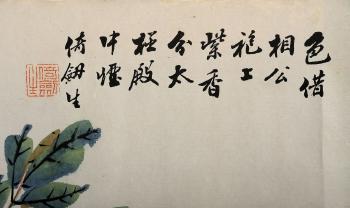 色借
相公
袍上
紫香
分太
極殿
中煙
倚劒生